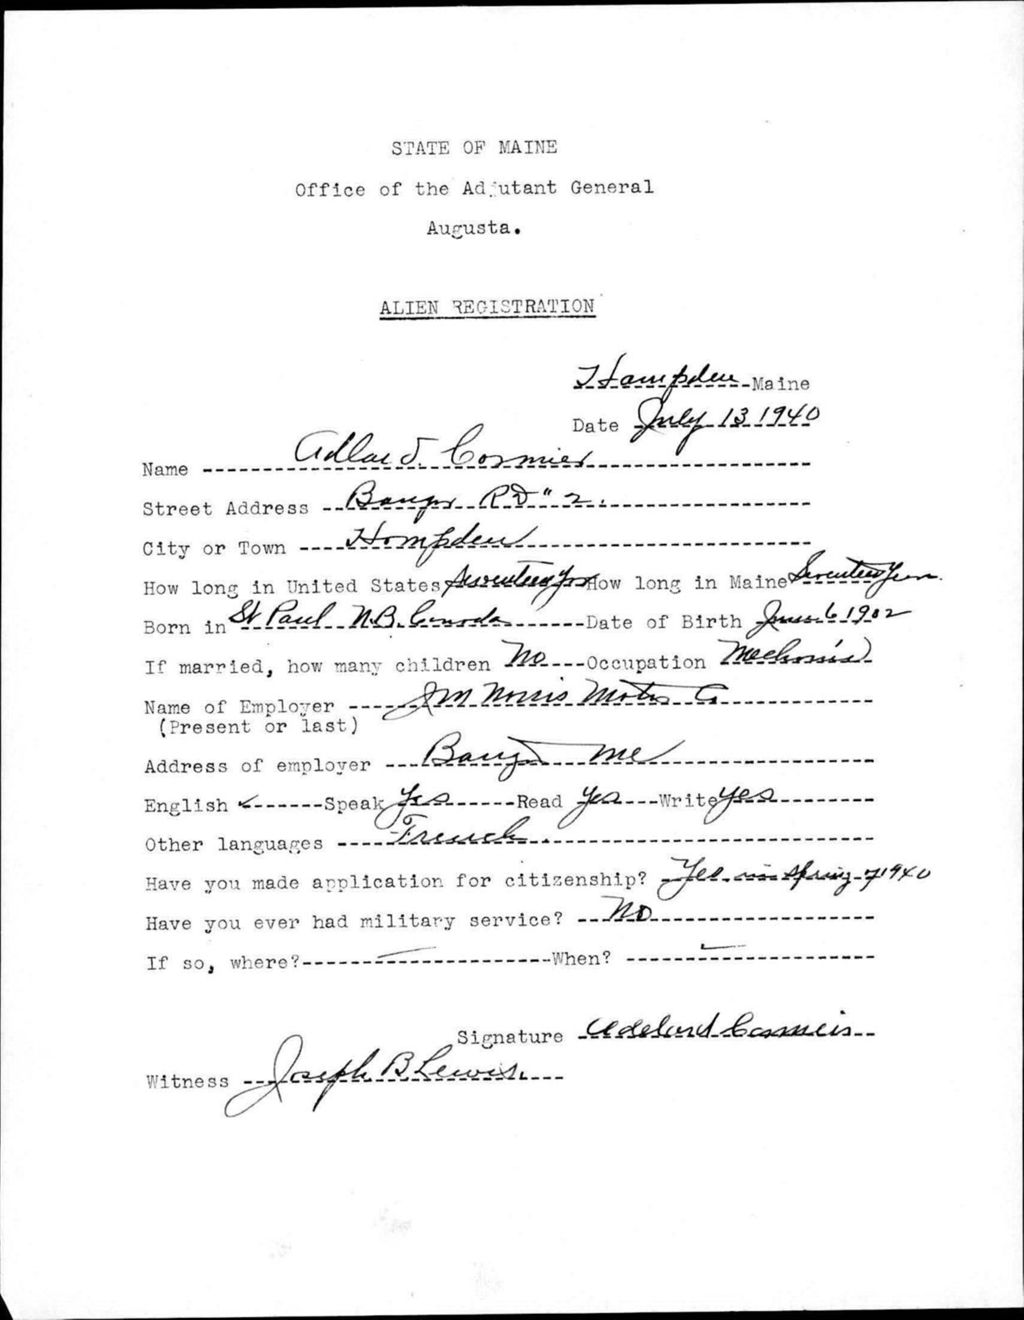 STATE OF MAINE
Office of the Adjutant General
Augusta.
ALIEN REGISTRATION
Hampden Maine
Date July 13 1940
Name Cormier
Street Address Bangor RD "2.
City or Town Hampden
How long in United States Seventeen Yrs How long in Maine Seventeen Years
Born in St Paul N.B. Canada Date of Birth June 6 1902
If married, how many children No Occupation Mechanic
Name of Employer Norris Motor Co
(Present or last)
Address of employer Bangor Me
English ✓ Speak Yes Read Yes Write yes
Other languages French.
Have you made application for citizenship? Yes in Spring of 1940
Have you ever had military service? No
If so, where? When?
Signature Adelard Cormier
Witness Joseph B Lewis.